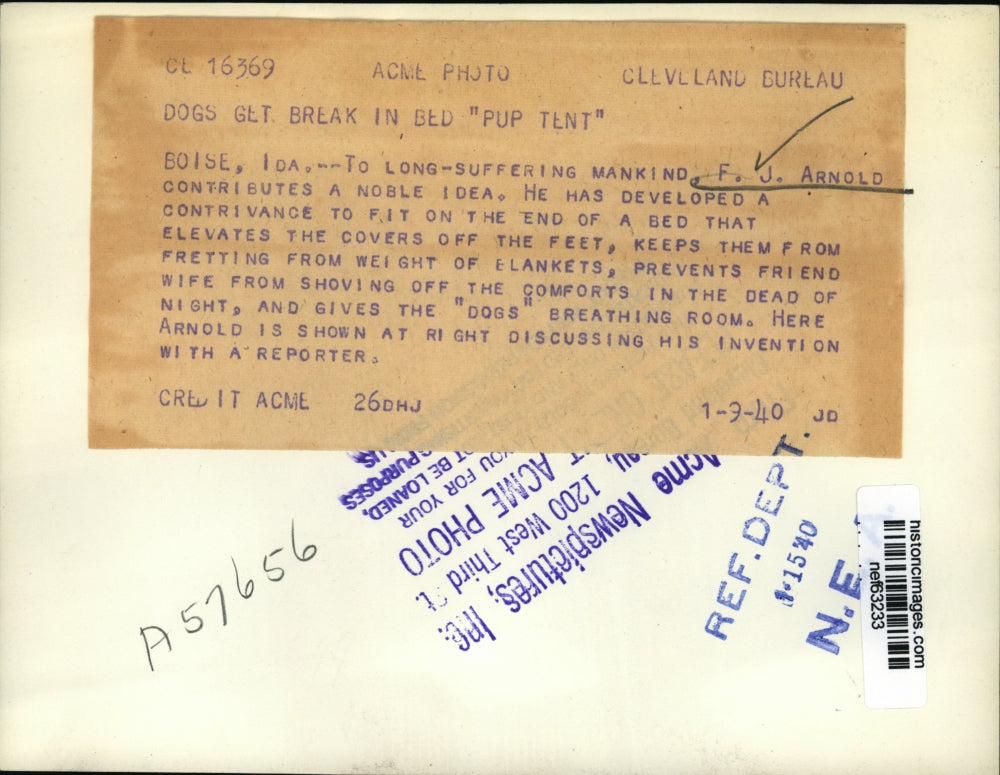 CL 16369 ACME PHOTO CLEVELAND BUREAU
DOGS GET BREAK IN BED "PUP TENT"
BOISE, IDA.--TO LONG-SUFFERING MANKIND, F. J. ARNOLD
CONTRIBUTES A NOBLE IDEA. HE HAS DEVELOPED A
CONTRIVANCE TO FIT ON THE END OF A BED THAT
ELEVATES THE COVERS OFF THE FEET, KEEPS THEM FROM
FRETTING FROM WEIGHT OF BLANKETS, PREVENTS FRIEND
WIFE FROM SHOVING OFF THE COMFORTS IN THE DEAD OF
NIGHT, AND GIVES THE "DOGS" BREATHING ROOM. HERE
ARNOLD IS SHOWN AT RIGHT DISCUSSING HIS INVENTION
WITH A REPORTER.
CREDIT ACME 26DHJ 1-9-40 JD
PURPOSES
NOT BE LOANED,
YOU FOR YOUR
ACME PHOTO
1200 West Third St.
Acme Newspictures, Inc.
REF. DEPT.
1-15 40
N. E. A.
A57656
historicimages.com
nef63233